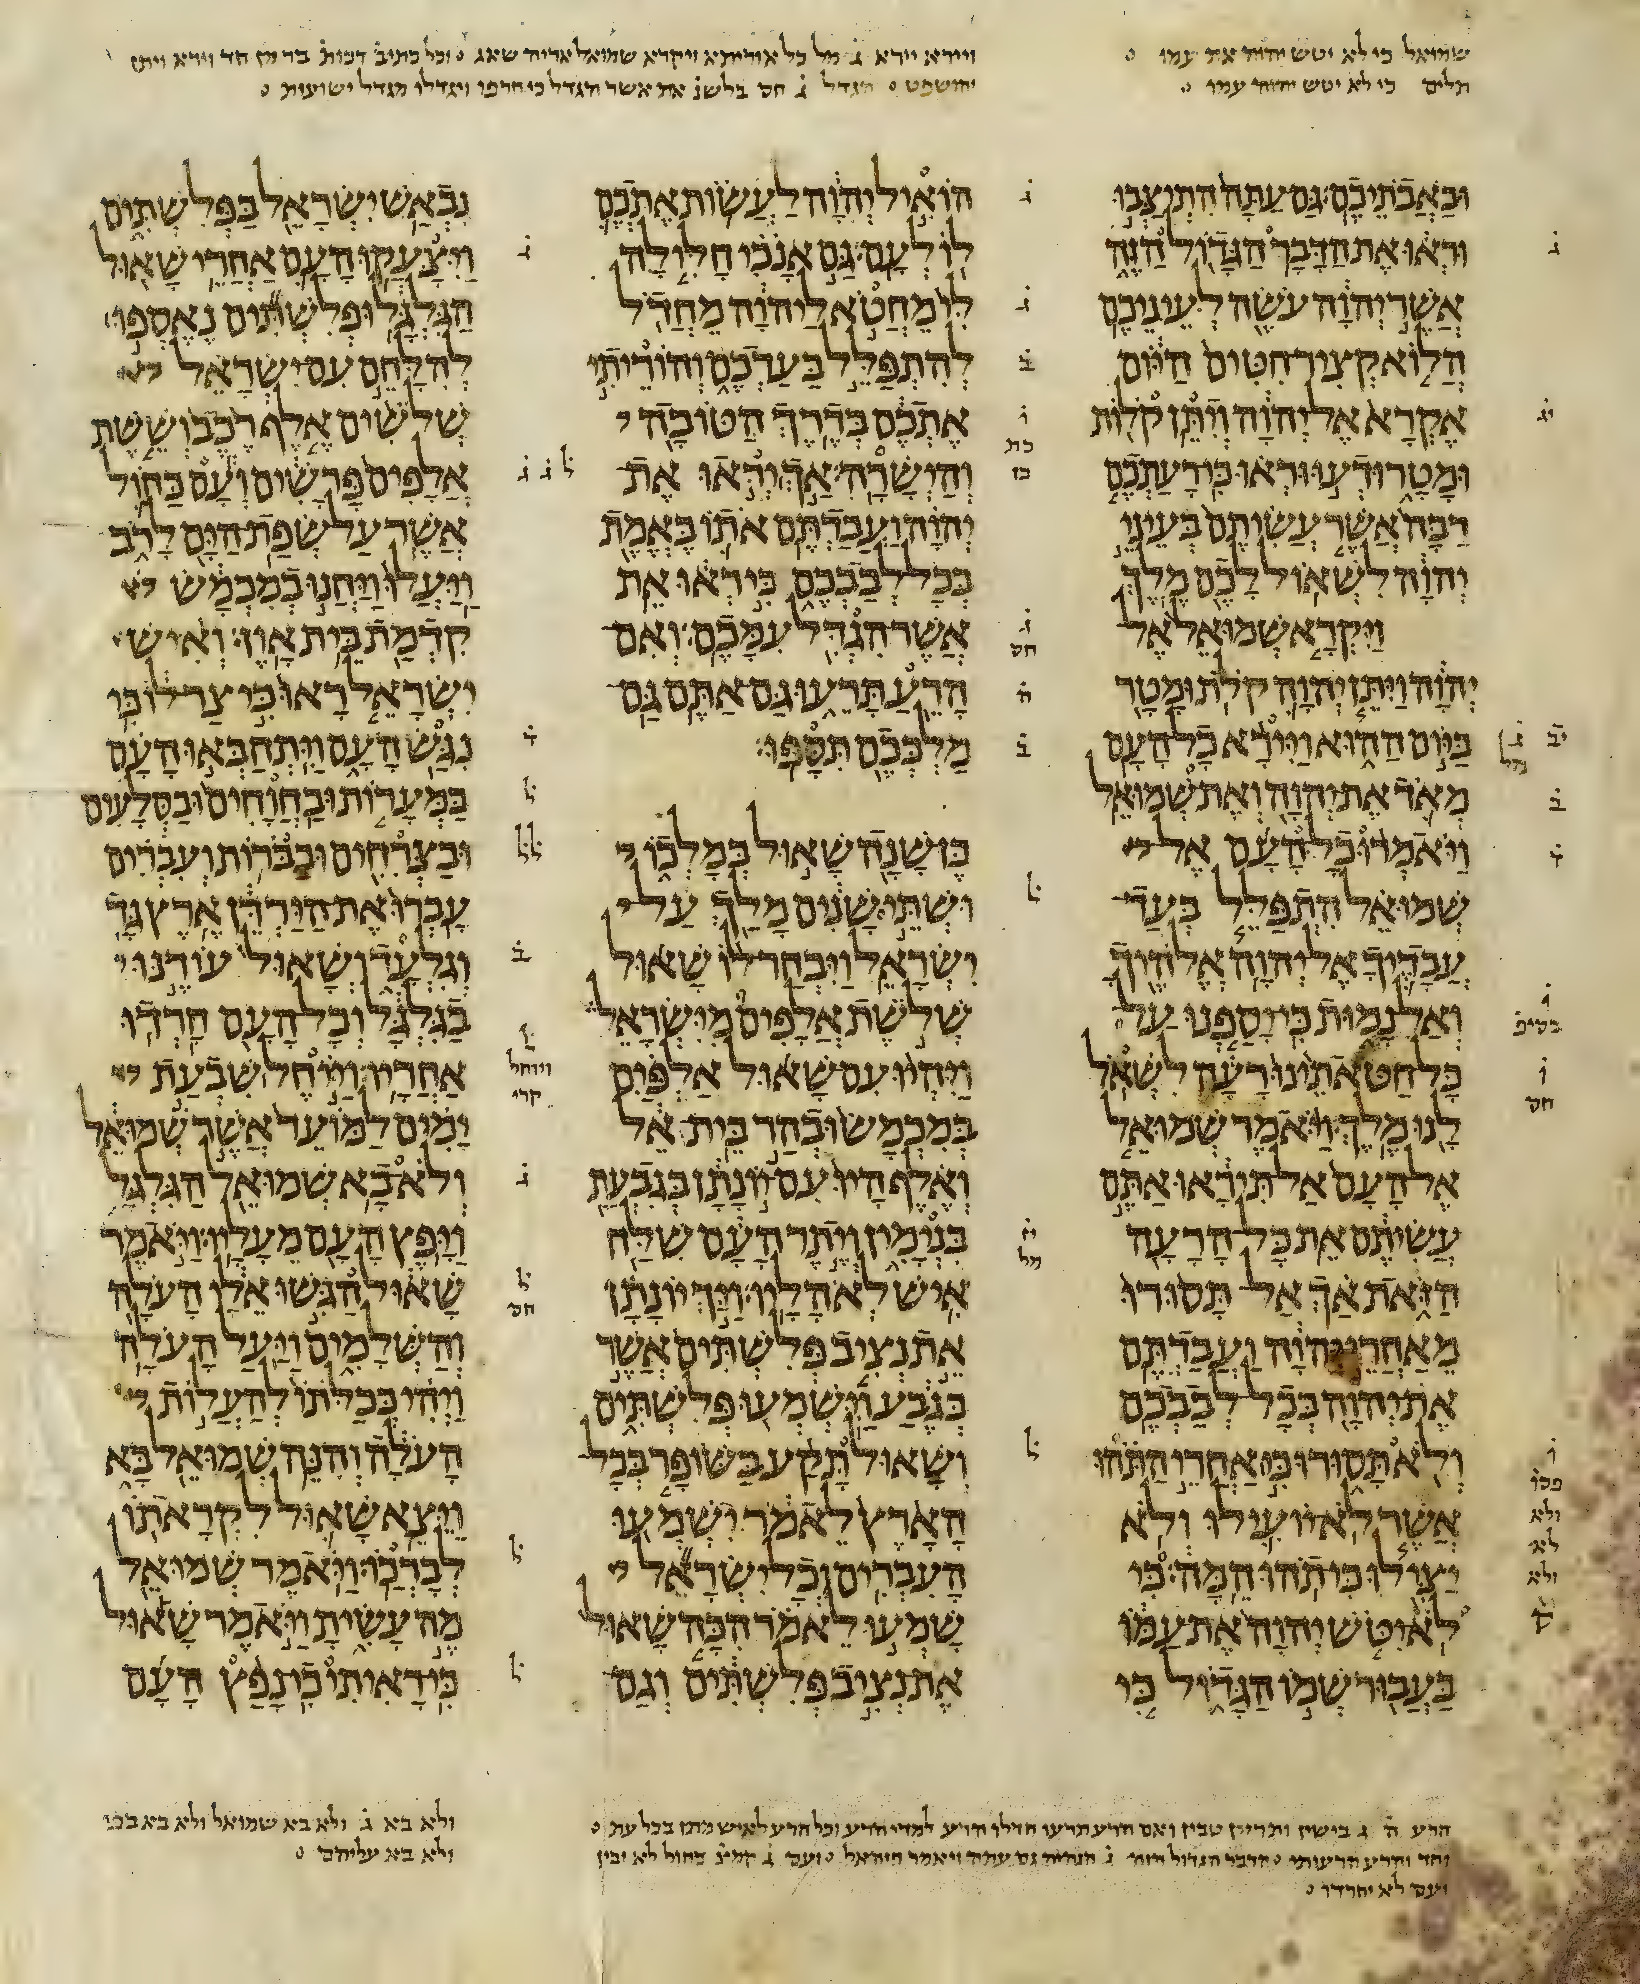 שמואל כי לא יטש יהוה את עמו
תלים כי לא יטש יהוה עמו
ויירא יירא ג מל כל אוריתא ויקרא שמואל אריה שאג וכל כתיב דכות בר מן חד וירא ויתן
יהושפט הגדל ג חס בלשנ את אשר הגדל כי חרפו ויגדלו מגדל ישועות
ובאבתיכם גם עתה התיצבו
וראו את הדבר הגדול הזה
אשר יהוה עשה לעיניכם
הלוא קציר חטים היום
אקרא אל יהוה ויתן קלות
ומטר ודעו וראו כי רעתכם
רבה אשר עשיתם בעיני
יהוה לשאול לכם מלך
ויקרא שמואל אל
יהוה ויתן יהוה קלת ומטר
ביום ההוא ויירא כל העם
מאד את יהוה ואת שמואל
ויאמרו כל העם אל
שמואל התפלל בעד
עבדיך אל יהוה אלהיך
ואל נמות כי יספנו על
כל חטאתינו רעה לשאל
לנו מלך ויאמר שמואל
אל העם אל תיראו אתם
עשיתם את כל הרעה
הזאת אך אל תסורו
מאחרי יהוה ועבדתם
את יהוה בכל לבבכם
ולא תסורו כי אחרי התהו
אשר לא יועילו ולא
יצילו כי תהו המה כי
לא יטש יהוה את עמו
בעבור שמו הגדול כי
הואיל יהוה לעשות אתכם
לו לעם גם אנכי חלילה
לי מחטא ליהוה מחדל
להתפלל בעדכם והוריתי
אתכם בדרך הטובה
והישרה אך יראו את
יהוה ועבדתם אתו באמת
בכל לבבכם כי ראו את
אשר הגדל עמכם ואם
הרע תרעו גם אתם גם
מלככם תספו
בן שנה שאול במלכו
ושתי שנים מלך על
ישראל ויבחר לו שאול
שלשת אלפים מישראל
ויהיו עם שאול אלפים
במכמש ובהר בית אל
ואלף היו עם יונתן בגבעת
בנימין ויתר העם שלח
איש לאהליו ויך יונתן
את נציב פלשתים אשר
בגבע וישמעו פלשתים
ושאול תקע בשופר בכל
הארץ לאמר ישמעו
העברים וכל ישראל
שמעו לאמר הכה שאול
את נציב פלשתים וגם
נבאש ישראל בפלשתים
ויצעקו העם אחרי שאול
הגלגל ופלשתים נאספו
להלחם עם ישראל
שלשים אלף רכב וששת
אלפים פרשים ועם כחול
אשר על שפת הים לרב
ויעלו ויחנו במכמש
קדמת בית און ואיש
ישראל ראו כי צר לו כי
נגש העם ויתחבאו העם
במערות ובחוחים ובסלעים
ובצרחים ובברות ועברים
עברו את הירדן ארץ גד
וגלעד ושאול עודנו
בגלגל וכל העם חרדו
אחריו וייחל שבעת
ימים למועד אשר שמואל
ולא בא שמואל הגלגל
ויפץ העם מעליו ויאמר
שאול הגשו אלי העלה
והשלמים ויעל העלה
ויהי ככלתו להעלות
העלה והנה שמואל בא
ויצא שאול לקראתו
לברכו ויאמר שמואל
מה עשית ויאמר שאול
כי ראיתי כי נפץ העם
הרע ה ג בישין ותריין טבין ואם הרע תרעו חדלו הרע למדי הרע וכל הרע לאיש מתן בכל עת
הדבר הגדול הזה
ועם לא יחרדו
ולא בא ג ולא בא שמואל ולא בא בבני
ולא בא עליהם